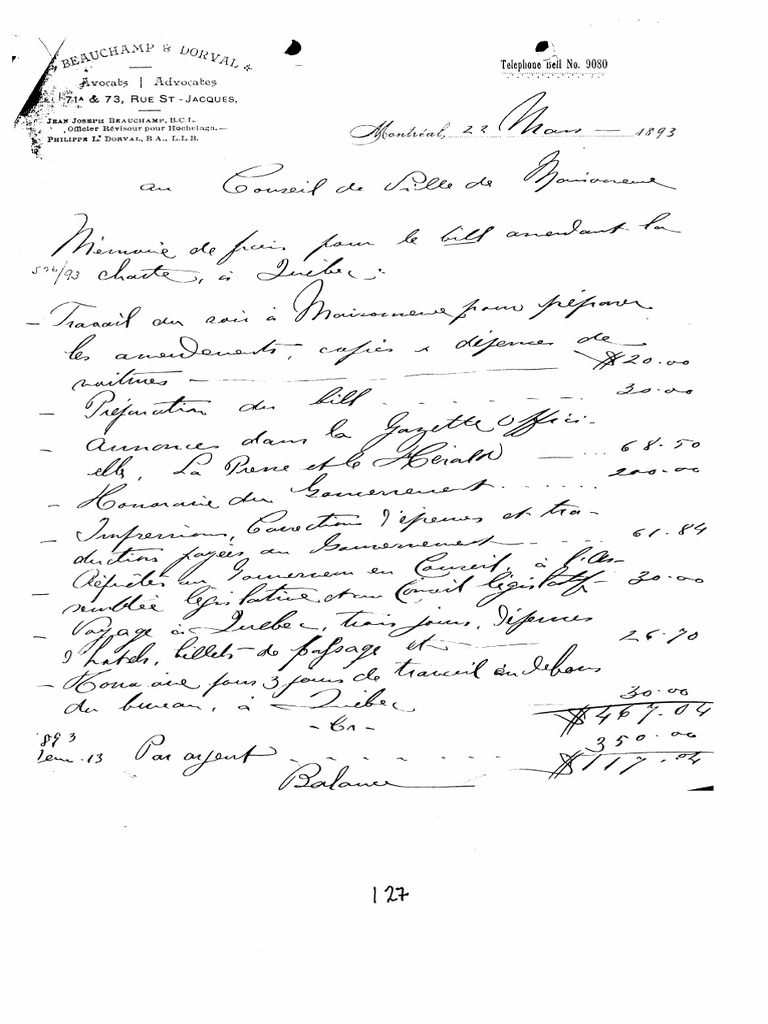 BEAUCHAMP & DORVAL
Avocats | Advocates
71A & 73, RUE ST-JACQUES,
JEAN JOSEPH BEAUCHAMP, B.C.L.
Officier Révisour pour Hochelaga.
PHILIPPE Ls DORVAL, B A., L.L.B.
Telephone Bell No. 9080
Montréal, 22 Mars 1893
au Conseil de Ville de Maisonneuve
Mémoire de frais pour le bill amendant la
charte, à Québec:
- Travail du soir à Maisonneuve pour préparer
les amendements, copies & dépenses de
voitures - $20.00
- Préparation du bill 30.00
- Annonces dans la Gazette Offici-
elle, La Presse et le Hérald 68.50
- Honoraire du Gouvernement 200.00
- Impressions, Corrections d'épreuves et tra-
duction payées au Gouvernement 61.84
- au Gouvernem en Conseil, à l'As-
semblée législative et au Conseil législatif 30.00
- Voyage à Québec, trois jours, dépenses
d'hotels, billets de passage etc 26.70
- Honoraire pour 3 jours de travail en dehors
du bureau, à Québec 30.00
$467.04
- Cr -
1893
13 Par argent 350.00
Balance $117.04
127